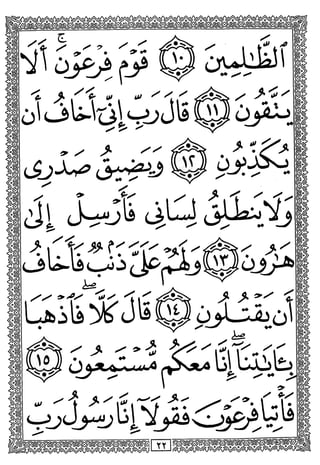 ٱلظَّٰلِمِينَ ١٠ قَوْمَ فِرْعَوْنَۚ أَلَا
يَتَّقُونَ ١١ قَالَ رَبِّ إِنِّيٓ أَخَافُ أَن
يُكَذِّبُونِ ١٢ وَيَضِيقُ صَدْرِى
وَلَا يَنطَلِقُ لِسَانِى فَأَرْسِلْ إِلَىٰ
هَٰرُونَ ١٣ وَلَهُمْ عَلَىَّ ذَنۢبٌ فَأَخَافُ
أَن يَقْتُلُونِ ١٤ قَالَ كَلَّاۖ فَٱذْهَبَا
بِـَٔايَٰتِنَآۖ إِنَّا مَعَكُم مُّسْتَمِعُونَ ١٥
فَأْتِيَا فِرْعَوْنَ فَقُولَآ إِنَّا رَسُولُ رَبِّ
٢٢